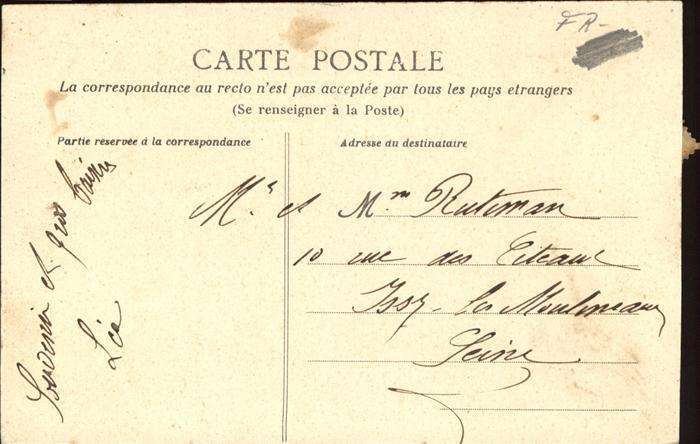 FR-
CARTE POSTALE
La correspondance au recto n'est pas acceptée par tous les pays etrangers
(Se renseigner à la Poste)
Partie reservée à la correspondance
Adresse du destinataire
Souvenir et gros baisers
Léa
Mr et Mme Rutsman
10 rue des Citeaux
Issy-les Moulineaux
Seine